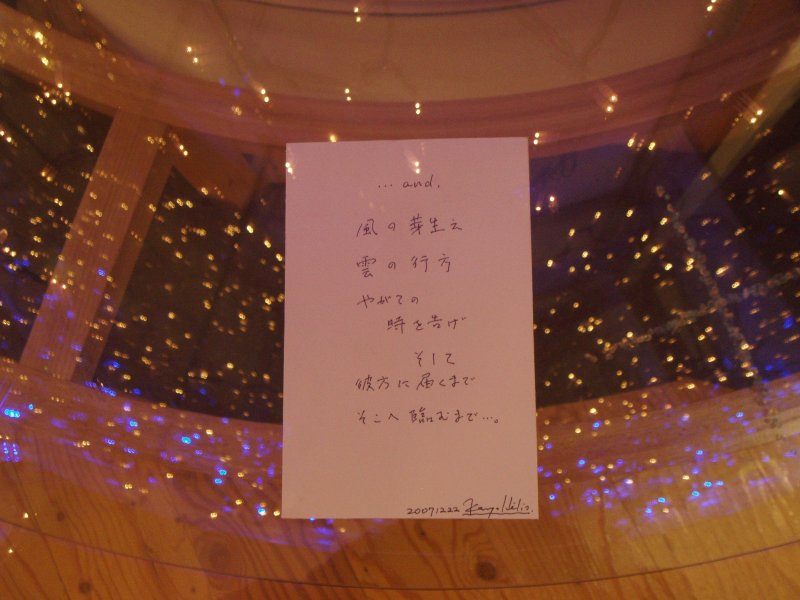 ... and.
風の芽生え
雲の行方
やがての
時を告げ
そして
彼方に届くまで
そこへ臨むまで...。
20071222